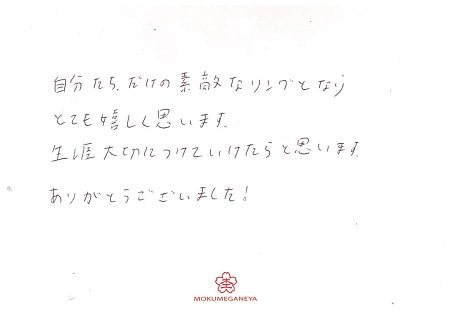 自分たちだけの素敵なリングとなり
とても嬉しく思います。
生涯大切につけていけたらと思います。
ありがとうございました!
MOKUMEGANEYA